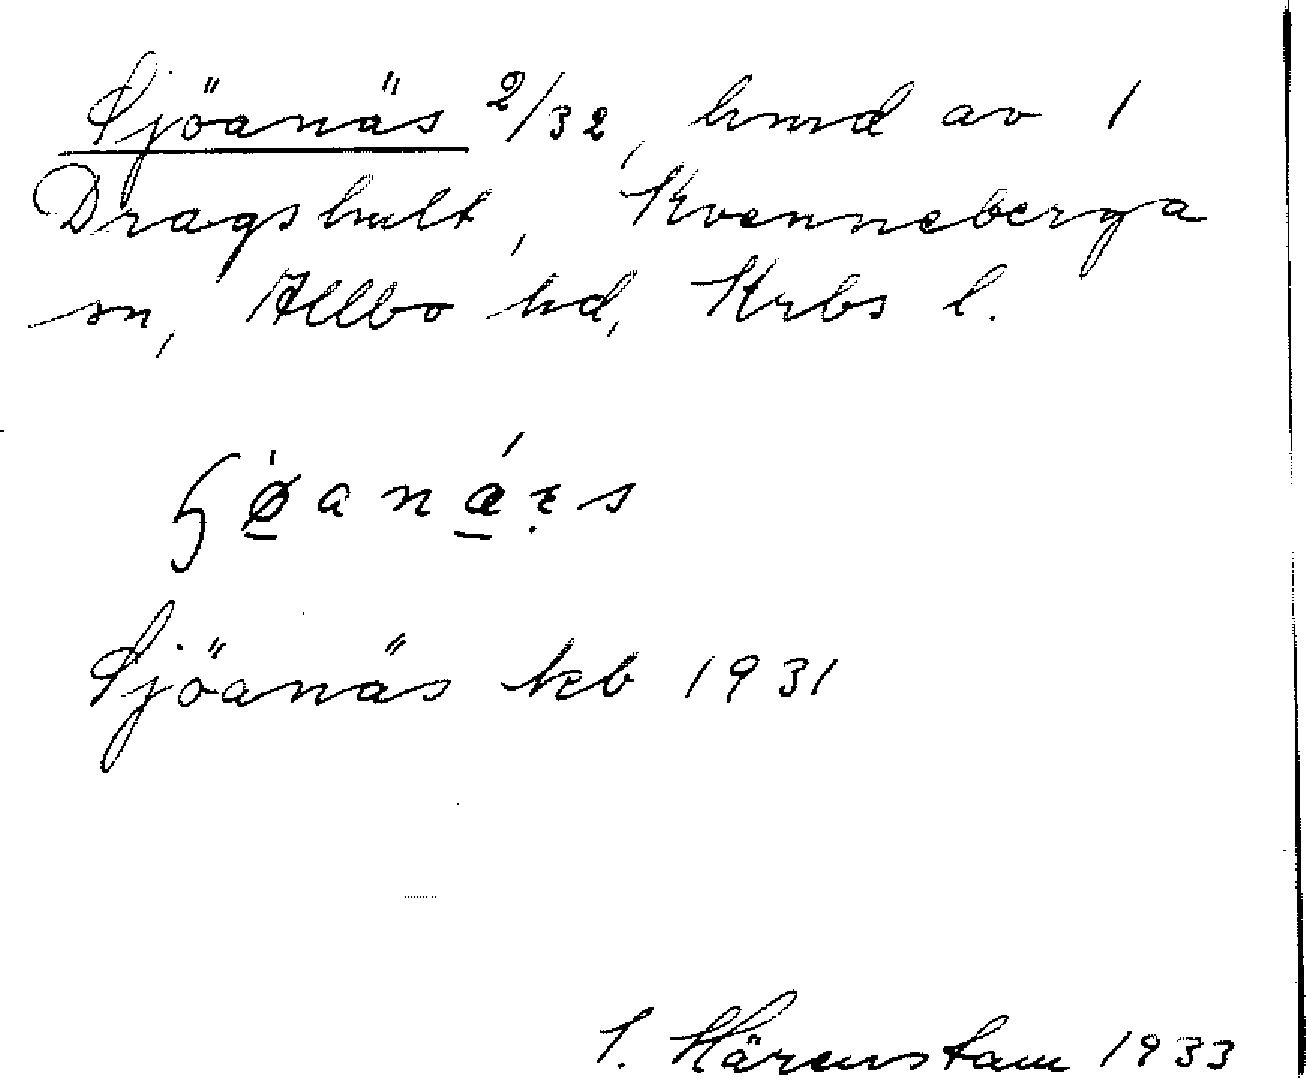 Sjöanäs 2/32, hmd av 1
Dragshult, Kvenneberga
sn, Allbo hd, Krbs l.
Sjöanäs kb 1931
S. Härenstam 1933